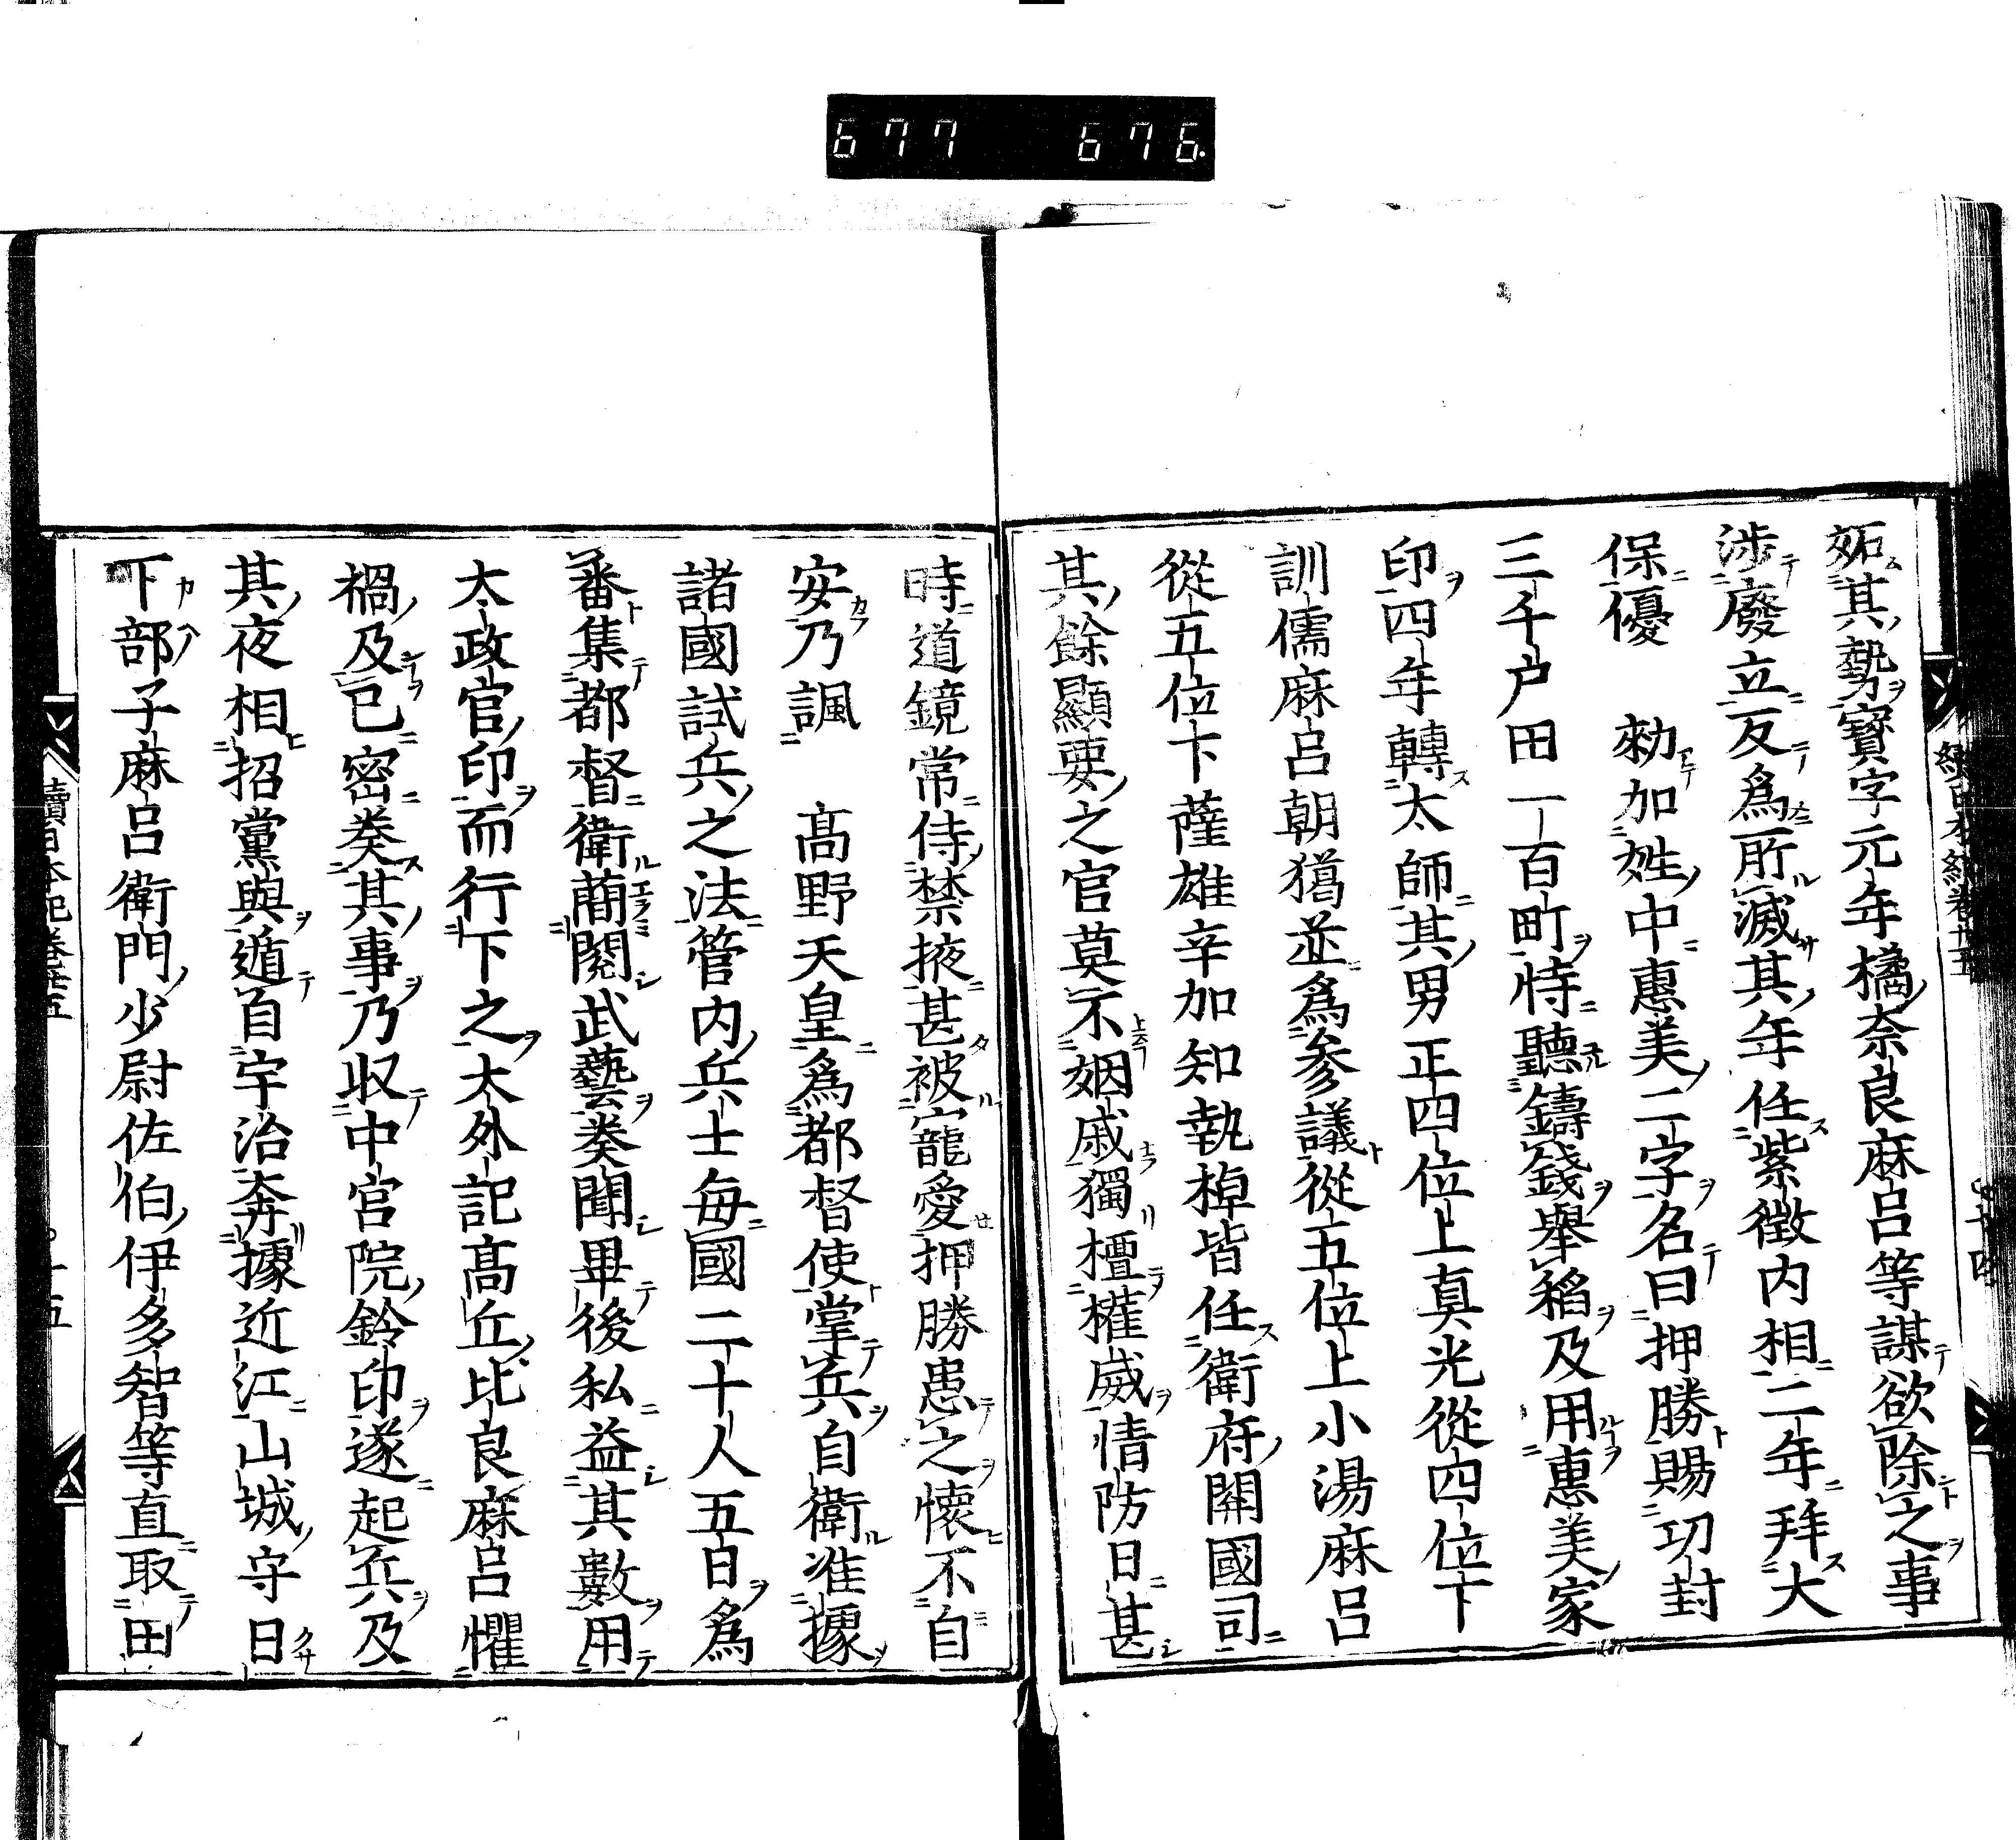 677 676
妬其勢寳字元年橘奈良麻呂等謀欲除之事
涉廢立反爲所滅其年任紫徵内相二年拜大
保優 勑加姓中惠美二字名曰押勝賜功封
三千戸田一百町特聽鑄錢舉稻及用惠美家
印四年轉太師其男正四位上真光從四位下
訓儒麻呂朝獦並爲参議從五位上小湯麻呂
從五位下薩雄辛加知執棹皆任衛府關國司
其餘顯要之官莫不姻戚獨擅權威情防日甚
時道鏡常侍禁掖甚被寵愛押勝患之懷不自
安乃諷 髙野天皇爲都督使掌兵自衛准據
諸國試兵之法管内兵士每國二十人五日爲
番集都督衛蕳閱武藝奏聞畢後私益其數用
太政官印而行下之太外記髙丘比良麻呂懼
禍及已密奏其事乃収中宮院鈴印遂起兵及
其夜相招黨與遁自宇治奔據近江山城守日
下部子麻呂衛門少尉佐伯伊多智等直取田
續日本紀卷廿五